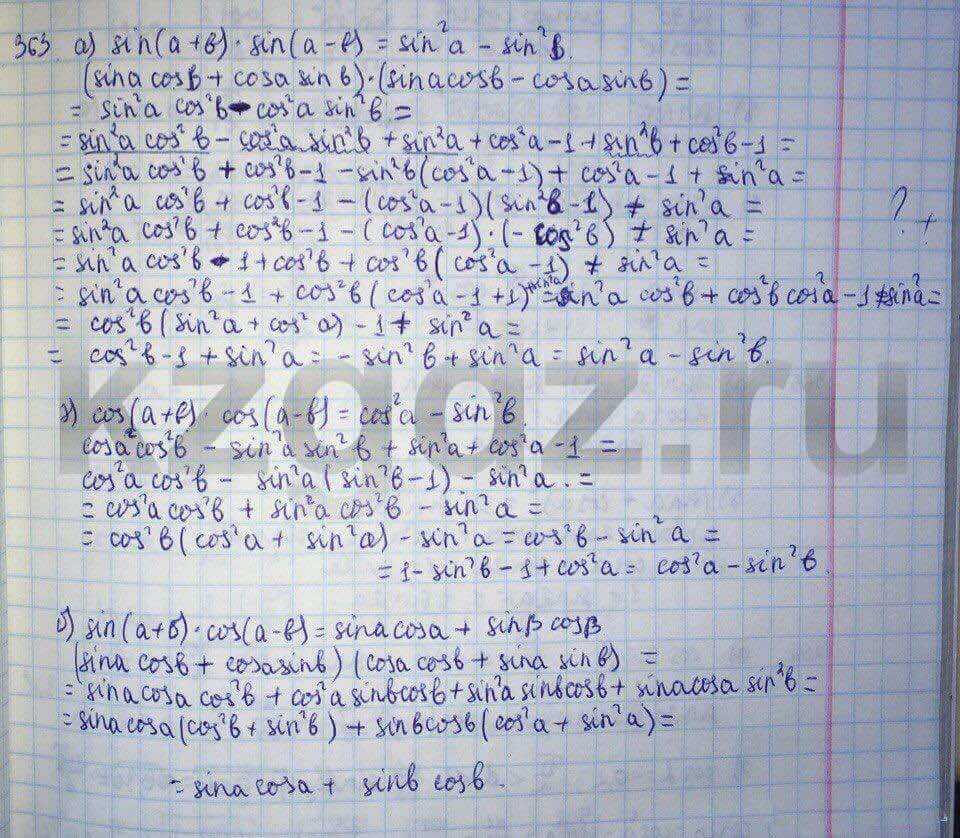 363 а) sin(a+в)·sin(a-в) = sin²a - sin²в.
(sina cosв + cosa sinв)·(sina cosв - cosa sinв) =
= sin²a cos²в - cos²a sin²в =
= sin²a cos²в - cos²a sin²в + sin²a + cos²a - 1 + sin²в + cos²в - 1 =
= sin²a cos²в + cos²в - 1 - sin²в(cos²a - 1) + cos²a - 1 + sin²a =
= sin²a cos²в + cos²в - 1 - (cos²a - 1)(sin²в - 1) + sin²a =
= sin²a cos²в + cos²в - 1 - (cos²a - 1)·(-cos²в) + sin²a =
? +
= sin²a cos²в - 1 + cos²в + cos²в(cos²a - 1) + sin²a =
= sin²a cos²в - 1 + cos²в(cos²a - 1 + 1) + sin²a = sin²a cos²в + cos²в cos²a - 1 + sin²a =
= cos²в(sin²a + cos²a) - 1 + sin²a =
= cos²в - 1 + sin²a = - sin²в + sin²a = sin²a - sin²в.
kzgdz.ru
г) cos(a+в)·cos(a-в) = cos²a - sin²в.
cosa² cos²в - sin²a sin²в + sin²a + cos²a - 1 =
cos²a cos²в - sin²a(sin²в - 1) - sin²a. =
= cos²a cos²в + sin²a cos²в - sin²a =
= cos²в(cos²a + sin²a) - sin²a = cos²в - sin²a =
= 1 - sin²в - 1 + cos²a = cos²a - sin²в.
б) sin(a+в)·cos(a-в) = sina cosa + sinβ cosβ
(sina cosв + cosa sinв)(cosa cosв + sina sinв) =
= sina cosa cos²в + cos²a sinв cosв + sin²a sinв cosв + sina cosa sin²в =
= sina cosa(cos²в + sin²в) + sinв cosв(cos²a + sin²a) =
= sina cosa + sinв cosв.